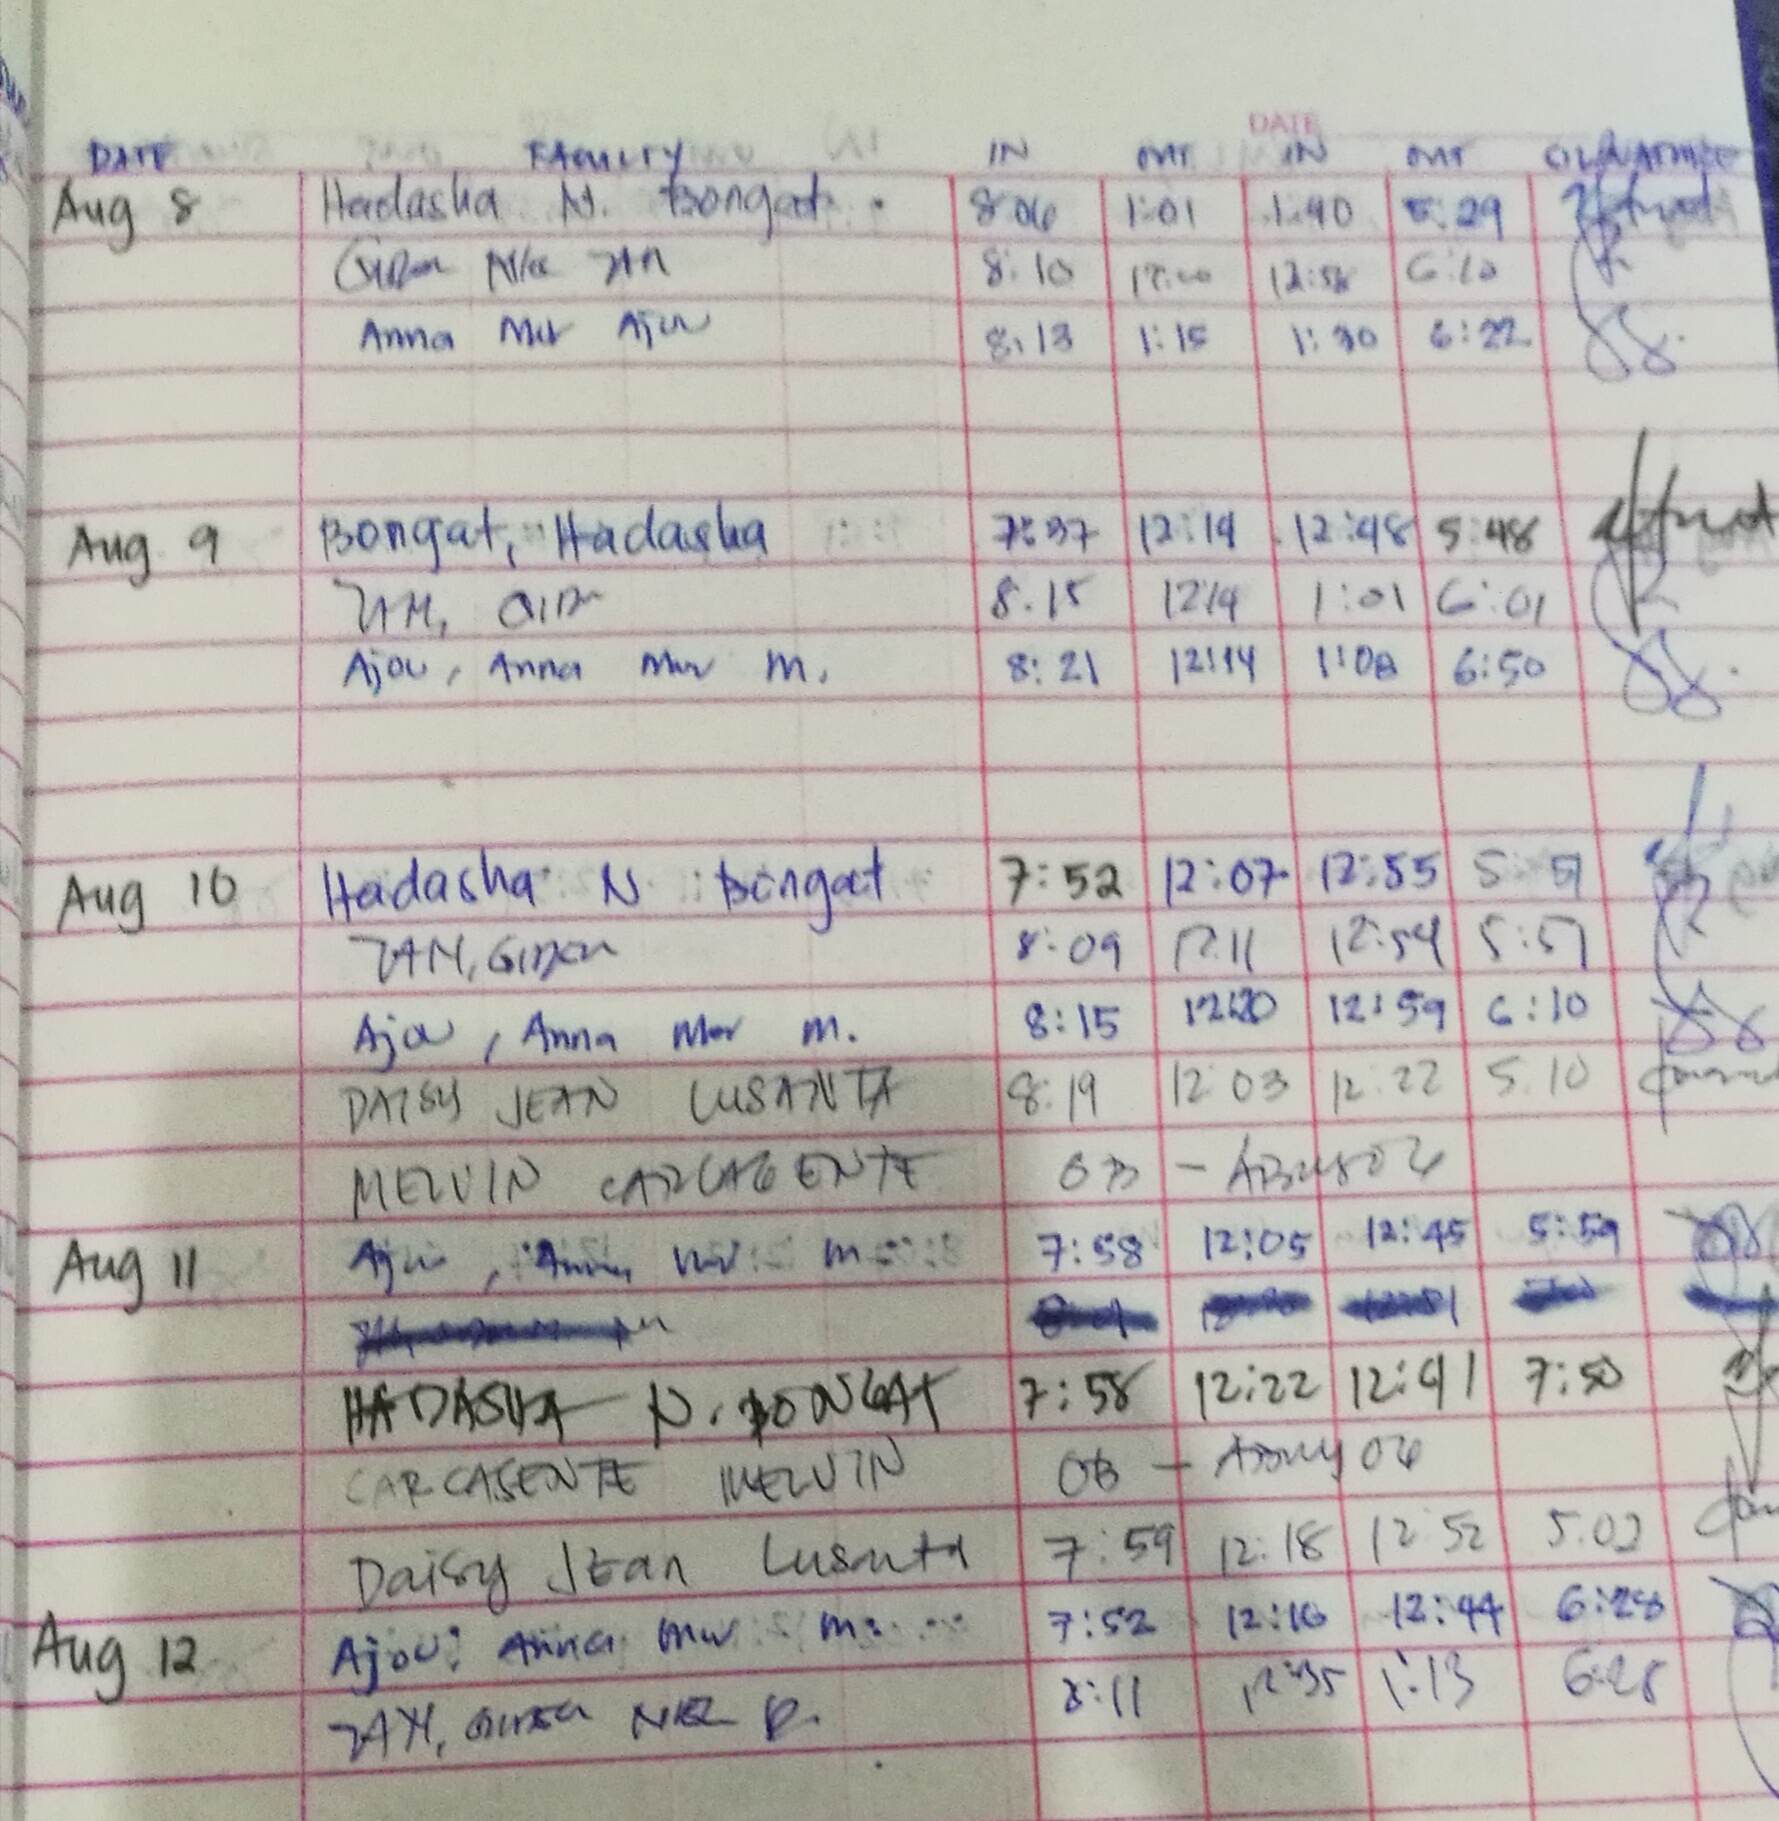 DATE
DATE FACULTY IN OUT IN OUT SIGNATURE
Aug 8 Hadasha N. Bongat 8:06 1:01 1:40 5:29
8:10 12:58 6:10
Anna Mar Ajou 8:13 1:15 1:30 6:22
Aug 9 Bongat, Hadasha 7:37 12:14 12:48 5:48
TAN, 8:15 1214 1:01 6:01
Ajou, Anna Mar M. 8:21 12:14 1:08 6:50
Aug 10 Hadasha N. Bongat 7:52 12:07 12:55 5:51
TAN, 8:09 12:11 12:54 5:51
Ajou, Anna Mar M. 8:15 12:20 12:59 6:10
DAISY JEAN LUSANTA 8:19 12 03 12:22 5.10
MELVIN CARCASENTE OB -
Aug 11 Ajou, Anna Mar M. 7:58 12:05 12:45 5:59
HADASHA N. BONGAT 7:58 12:22 12:41 7:50
CARCASENTE MELVIN OB -
Daisy Jean Lusanta 7:59 12:18 12 52 5.02
Aug 12 Ajou, Anna Mar M. 7:52 12:16 12:44 6:28
TAN, 8:11 12:35 1:13 6:28